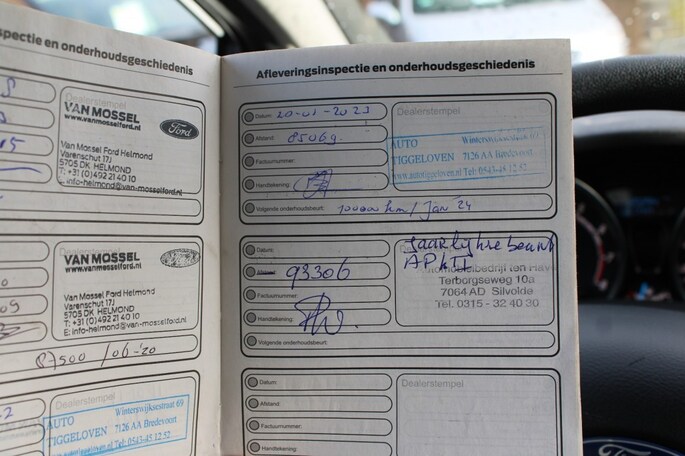 inspectie en onderhoudsgeschiedenis
Dealerstempel
VAN MOSSEL
www.vanmosselford.nl
Ford
Van Mossel Ford Helmond
Varenschut 17J
5705 DK HELMOND
T: +31 (0)492 21 40 10
E: info-helmond@van-mossel.nl
VAN MOSSEL
www.vanmosselford.nl
Van Mossel Ford Helmond
Varenschut 17J
5705 DK HELMOND
T: +31 (0)492 21 40 10
E: info-helmond@van-mossel.nl
87500 / 06-'20
Dealerstempel
AUTO
TIGGELOVEN
Winterswijksestraat 69
7126 AA Bredevoort
www.autotiggeloven.nl Tel: 0543-45 12 52
Afleveringsinspectie en onderhoudsgeschiedenis
Datum: 20-01-2023
Afstand: 85069
Factuurnummer:
Handtekening:
Volgende onderhoudsbeurt: 10000 km / Jan 24
Dealerstempel
AUTO
TIGGELOVEN
Winterswijksestraat 69
7126 AA Bredevoort
www.autotiggeloven.nl Tel: 0543-45 12 52
Datum:
Afstand: 93306
Factuurnummer:
Handtekening:
Volgende onderhoudsbeurt:
Jaarlijkse beurt
APK
Terborgseweg 10a
7064 AD Silvolde
Tel. 0315 - 32 40 30
Datum:
Afstand:
Factuurnummer:
Handtekening:
Dealerstempel
Ford